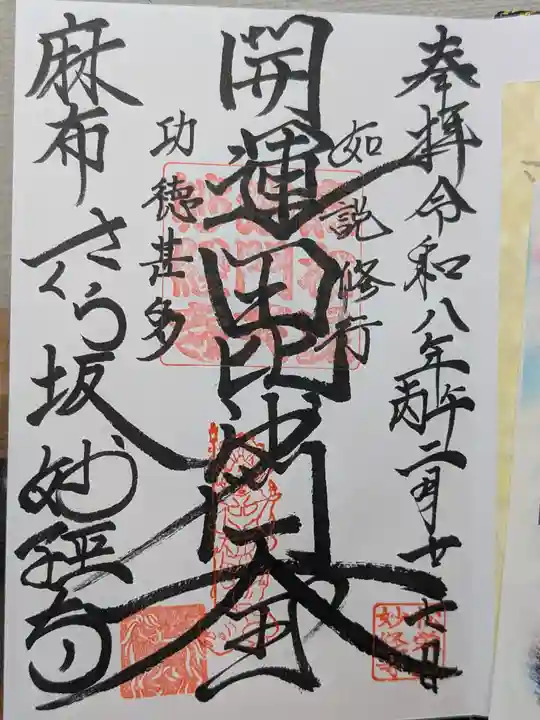 奉拝 令和八年丙午二月廿七日
如説修行
開運毘沙門天王
功徳甚多
麻布さくら坂 妙経寺